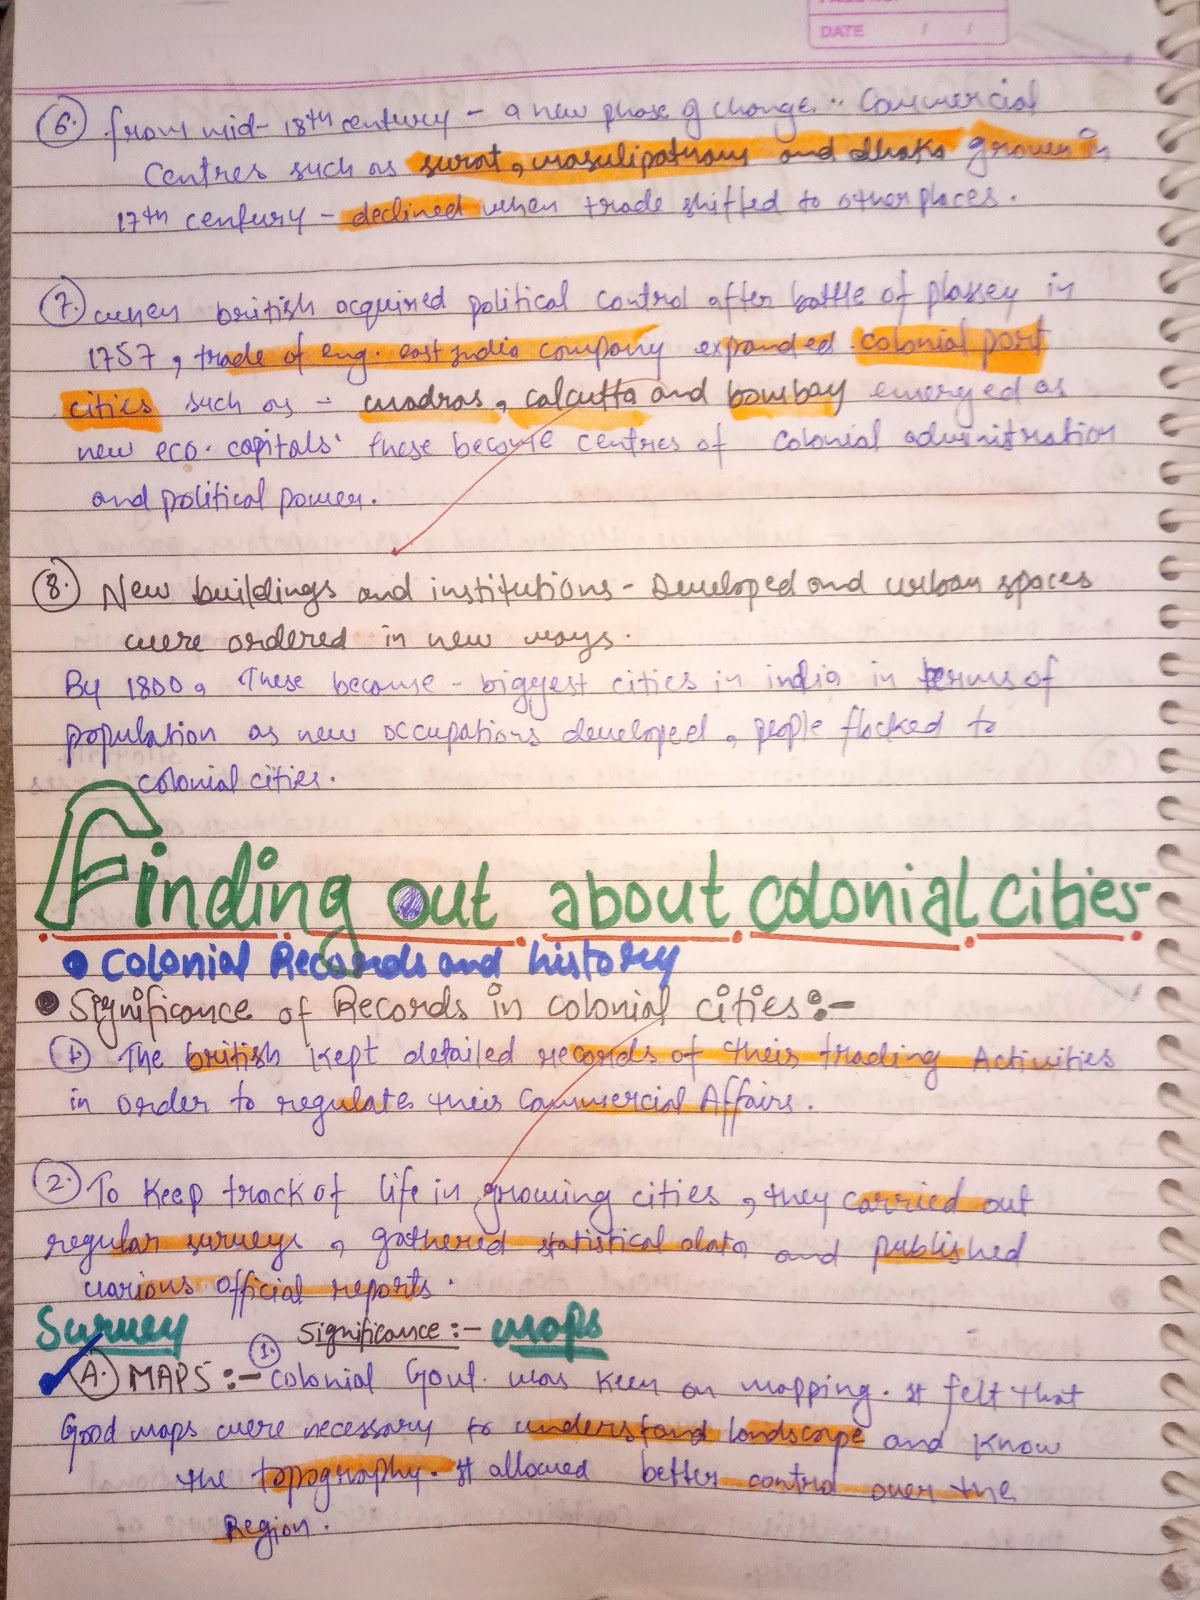 DATE
6. from mid-18th century - a new phase of change. Commercial
Centres such as surat, masulipatnam and dhaka grown in
17th century - declined when trade shifted to other places.
7. when british acquired political control after battle of plassey in
1757, trade of eng. east india company expanded. colonial port
cities such as - madras, calcutta and bombay emerged as
new eco. capitals. these become centres of colonial administration
and political power.
8. New buildings and institutions - Developed and urban spaces
were ordered in new ways.
By 1800, These became - biggest cities in india in terms of
population as new occupations developed, people flocked to
colonial cities.
Finding out about colonial cities-
• Colonial Records and history
• Significance of Records in colonial cities:-
1. The british kept detailed records of their trading Activities
in order to regulate their Commercial Affairs.
2. To Keep track of life in growing cities, they carried out
regular surveys, gathered statistical data and published
various official reports.
Survey Significance:- maps
A. MAPS:- 1. Colonial Govt. was keen on mapping. It felt that
Good maps were necessary to understand landscape and know
the topography. It allowed better control over the
Region.